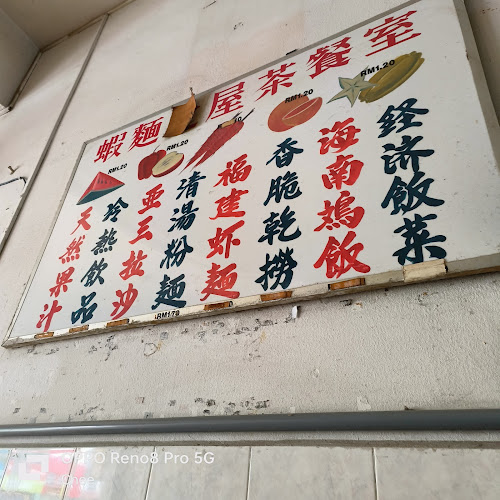 蝦麵 屋茶餐室
RM1.20
RM1.20
RM1.20
RM1.20
天然果汁
冷热飲品
亞三拉沙
清湯粉麵
福建虾麵
香脆乾撈
海南鸡飯
经济飯菜
Reno8 Pro 5G